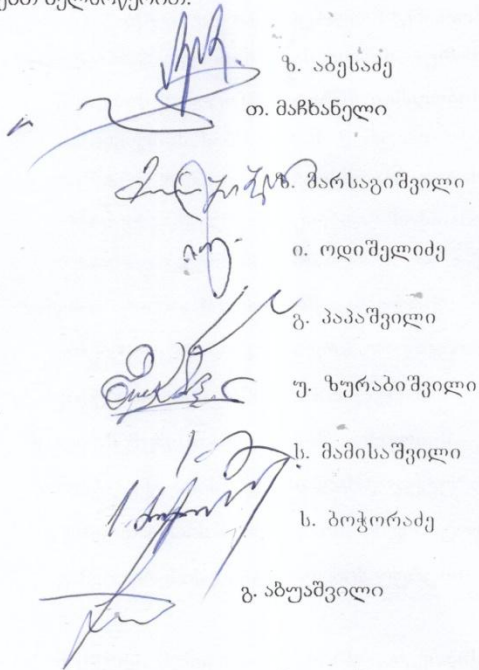 ხელმოწერით.
ზ. აბესაძე
თ. მაჩხანელი
ზ. მარსაგიშვილი
ი. ოდიშელიძე
გ. პაპაშვილი
უ. ზურაბიშვილი
ს. მამისაშვილი
ს. ბოჭორაძე
გ. აბუაშვილი